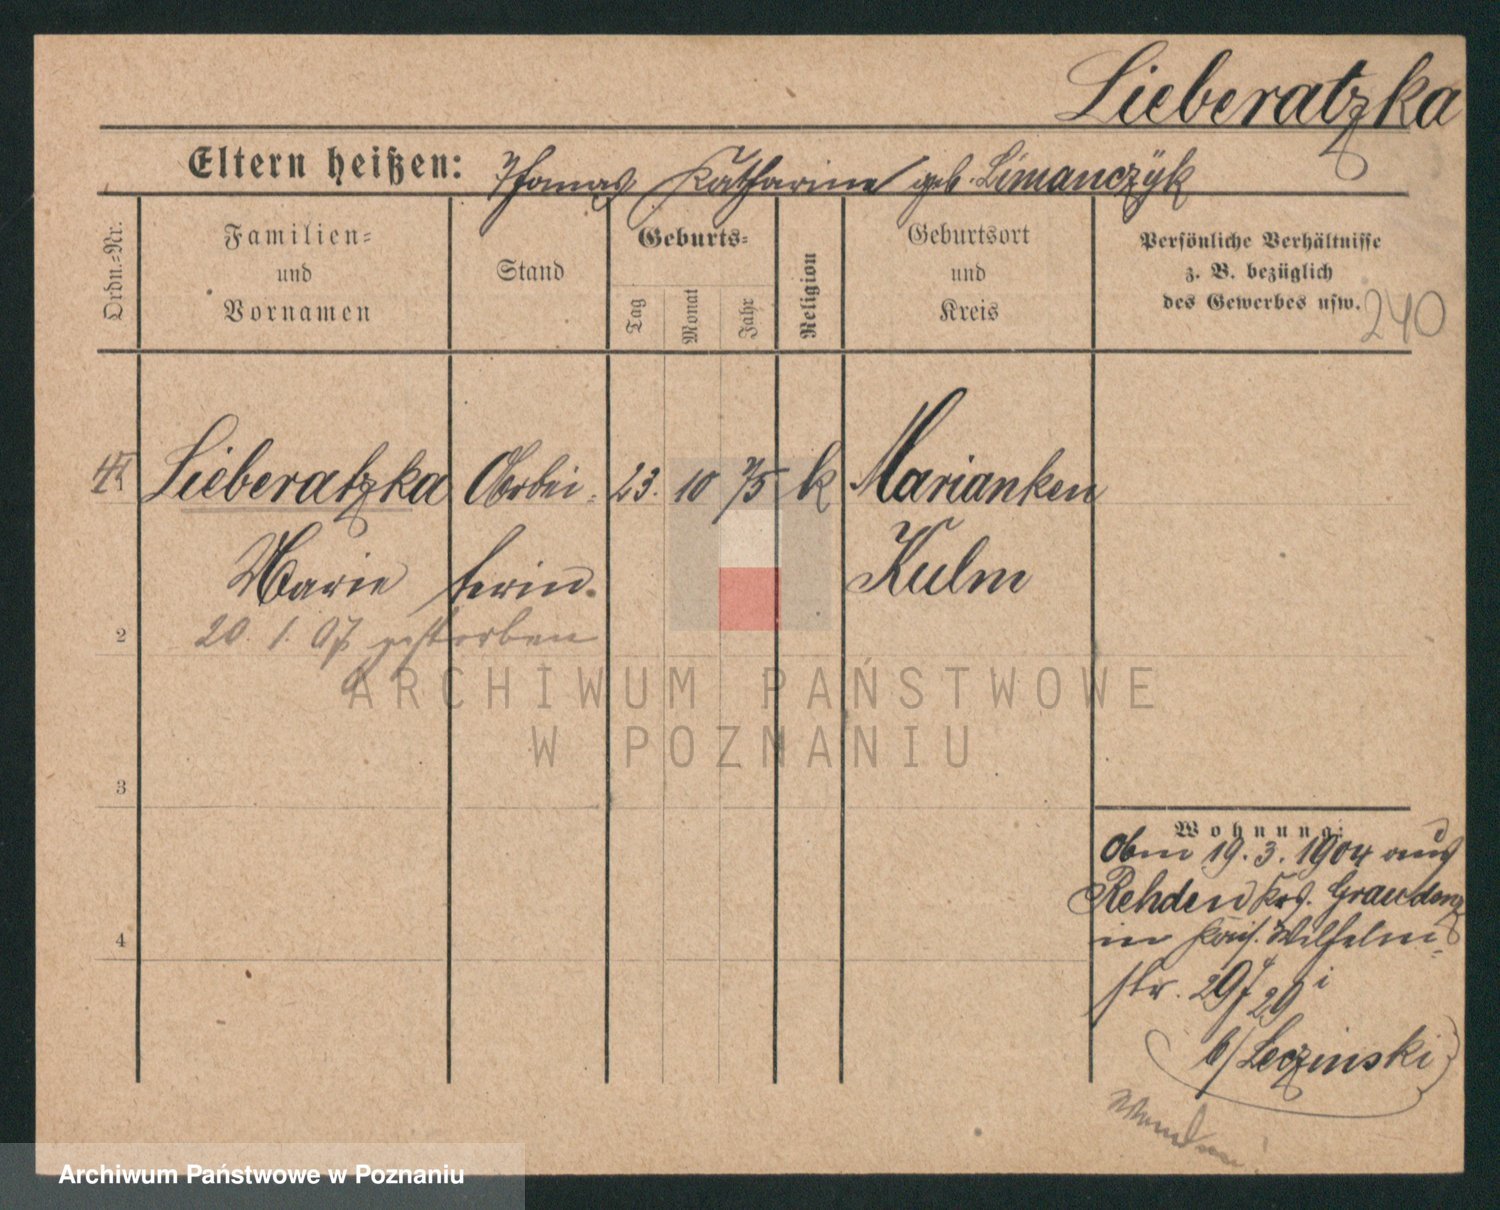 Lieberatzka
Eltern heißen: Thomas Katharine geb. Limanczÿk
Ordn.-Nr.
Familien-
und
Vornamen
Stand
Geburts-
Tag
Monat
Jahr
Religion
Geburtsort
und
Kreis
Persönliche Verhältnisse
z. B. bezüglich
des Gewerbes usw.
240
Lieberatzka Arbei- 23. 10 75 k Marianken
Marie terin. Kulm
20. 1. 07 gestorben
2
3
4
ARCHIWUM PAŃSTWOWE
W POZNANIU
Wohnung:
Am 19. 3. 1904 aus
Rehden Krs. Graudenz
in Kais. Wilhelm-
str. 29
b/ Leczinski
Wenden!
Archiwum Państwowe w Poznaniu